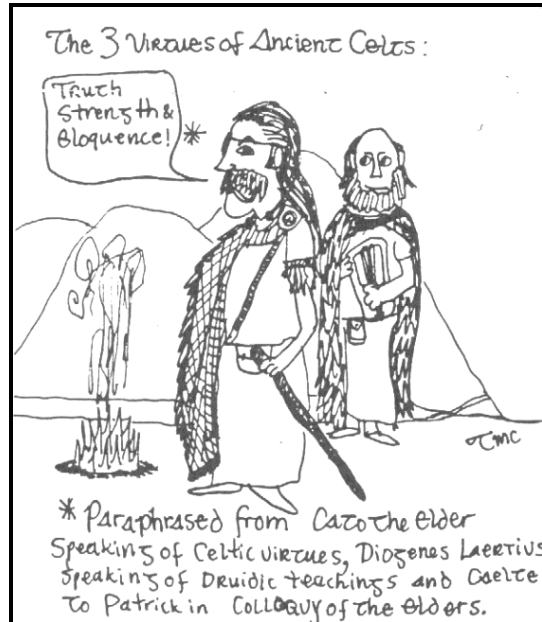 The 3 Virtues of Ancient Celts:
Truth
Strength &
Eloquence! *
TMC
* Paraphrased from Cato the Elder
Speaking of Celtic virtues, Diogenes Laertius
speaking of Druidic teachings and Caelte
to Patrick in Colloquy of the Elders.